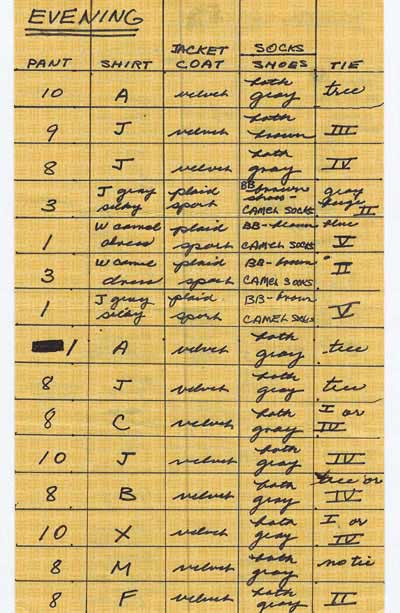 EVENING
JACKET SOCKS
PANT SHIRT COAT SHOES TIE
10 A velvet both gray tree
9 J velvet both brown III
8 J velvet both gray IV
3 J gray silky plaid sport BB brown shoes - CAMEL SOCKS gray beige II
1 W camel dress plaid sport BB-brown CAMEL SOCKS blue V
3 W camel dress plaid sport BB-brown CAMEL SOCKS " II
1 J gray silky plaid sport BB-brown CAMEL SOCKS V
1 A velvet both gray tree
8 J velvet both gray tree
8 C velvet both gray I or IV
10 J velvet both gray IV
8 B velvet both gray tree or IV
10 X velvet both gray I or IV
8 M velvet both gray no tie
8 F velvet both gray II